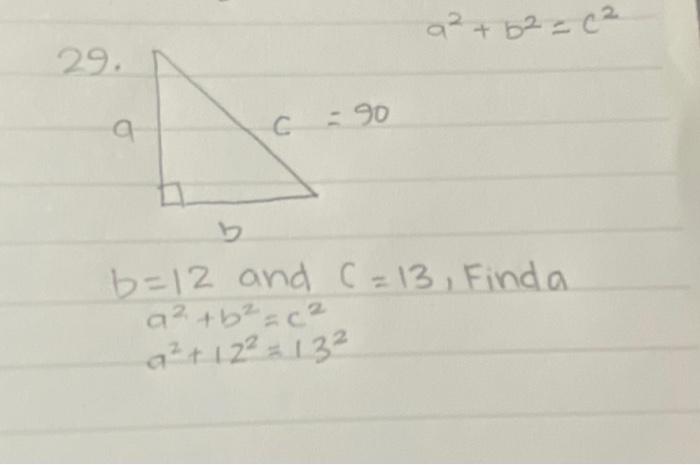 a² + b² = c²
29.
a
c = 90
b
b=12 and c=13, Find a
a² + b² = c²
a² + 12² = 13²